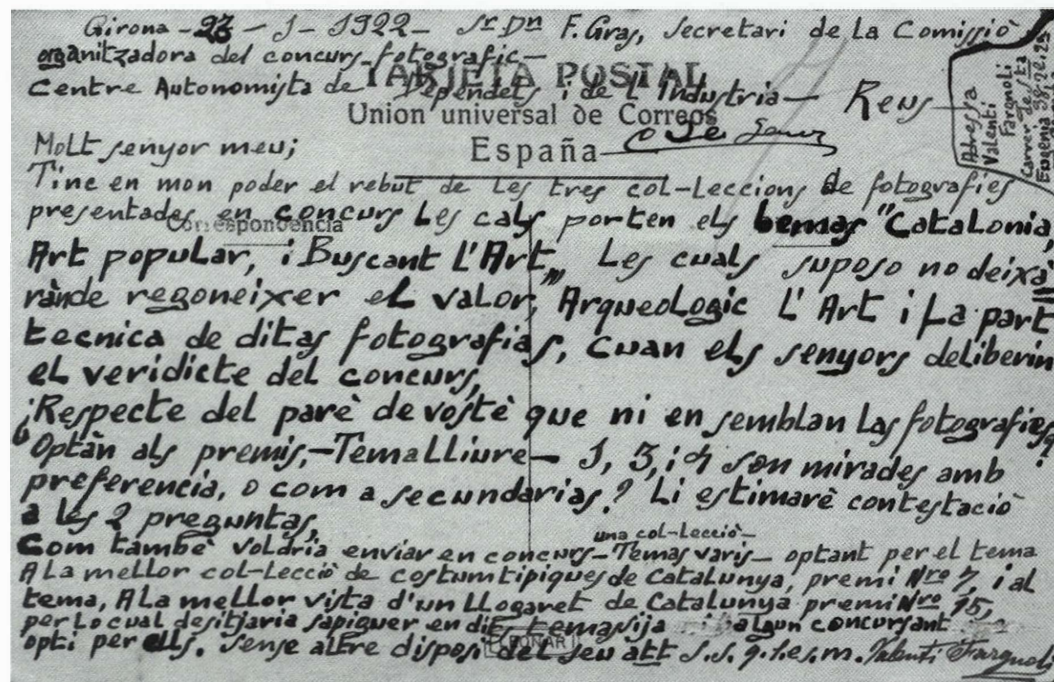 Girona - 23 - 1 - 1922 - Sr Dn F. Gras, Secretari de la Comissiò
organitzadora del concurs fotografic -
TARJETA POSTAL
Centre Autonomista de Dependets i de l'Industria - Reus -
Union universal de Correos
España
Adressa
Valenti
Fargnoli
Carrer de Sta
Eugenia
Molt senyor meu;
Tinc en mon poder el rebut de les tres col-leccions de fotografies
presentades en concurs Les cals porten els temas "Catalonia,
Correspondencia
Art popular, i Buscant L'Art" Les cuals suposo no deixa
rànde regoneixer el valor, "Arqueologic L'Art i La part
tecnica de ditas fotografias, cuan els senyors deliberin
el veridicte del concurs,
¡Respecte del parè de vostè que ni en semblan las fotografies?
¿Optàn als premis,-Tema lliure- 1, 3, i 4 son mirades amb
preferencia, o com a secundarias? Li estimarè contestaciò
a les 2 preguntas,
una col-lecciò-
Com tambè voldria enviar en concurs-Temas varis- optant per el tema
A La mellor col-lecciò de costum tipiques de Catalunya, premi Nro 7, i al
tema, A La mellor vista d'un Llogaret de Catalunya premi Nro 15,
per Lo cual desitjaria sapiguer en dits temas ija algun concursant
opti per ells. Sense altre disposi del seu att s.s.q.s.e.s.m. Valenti Fargnoli
BONAR